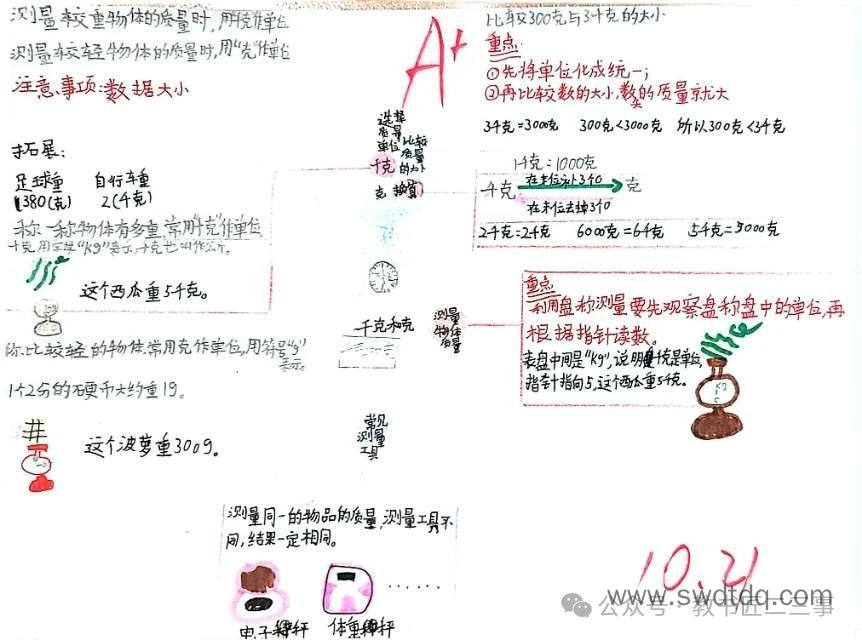 测量较重物体的质量时,用"千克"作单位
测量较轻物体的质量时,用"克"作单位
注意事项:数据大小
拓展:
足球重 自行车重
380(克) 2(千克)
称一称物体有多重,常用"千克"作单位,
这个西瓜重5千克。
比较轻的物体,常用克作单位,用符号"g"
表示。
1个2分的硬币大约重1g。
这个波萝重300g。
A+
选择
质量
单位
比较
质量
的大小
千克
克 换算
千克和克
测量
物体
质量
常见
测量
工具
比较300克与3千克的大小
重点
①先将单位化成统一;
②再比较数的大小,数大的质量就大
3千克=3000克 300克<3000克 所以300克<3千克
1千克=1000克
千克 在末位添上3个0 克
在末位去掉3个0
2千克=2千克 6000克=6千克 5千克=5000克
重点
利用盘称测量要先观察盘称盘中的单位,再
根据指针读数。
表盘中间是"Kg",说明千克是单位,
指针指向5,这个西瓜重5千克。
Kg
5
测量同一的物品的质量,测量工具不
同,结果一定相同。
电子秤 体重秤
······
10.21
www.swdtdq.com
公众号·教书匠二三事